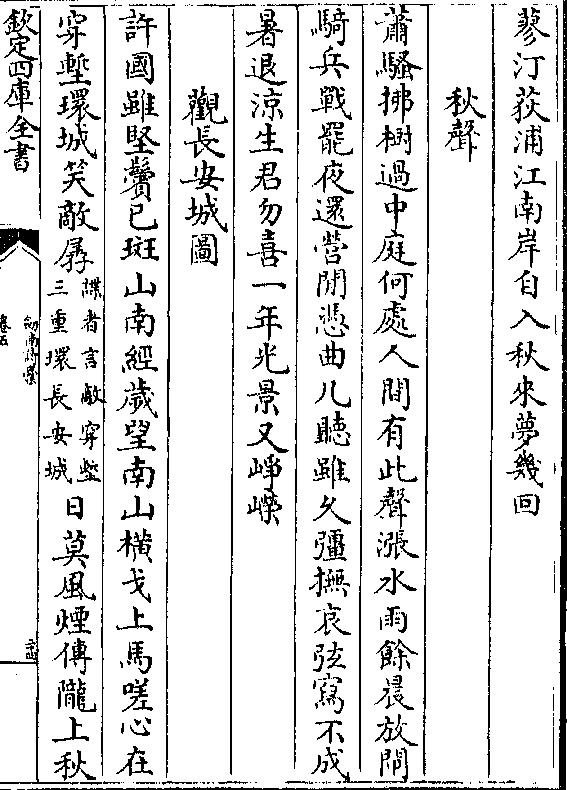 蓼汀荻浦江南岸自入秋來夢幾回
秋聲
蕭騷拂樹過中庭何處人間有此聲漲水雨餘晨放閘
騎兵戰罷夜還營閒憑曲几聽雖久彊撫哀弦寫不成
暑退涼生君勿喜一年光景又崢嶸
觀長安城圖
許國雖堅鬢已斑山南經歲望南山橫戈上馬嗟心在
穿塹環城笑敵孱諜者言敵穿塹三重環長安城日莫風煙傳隴上秋
欽定四庫全書
劍南詩稾
卷五